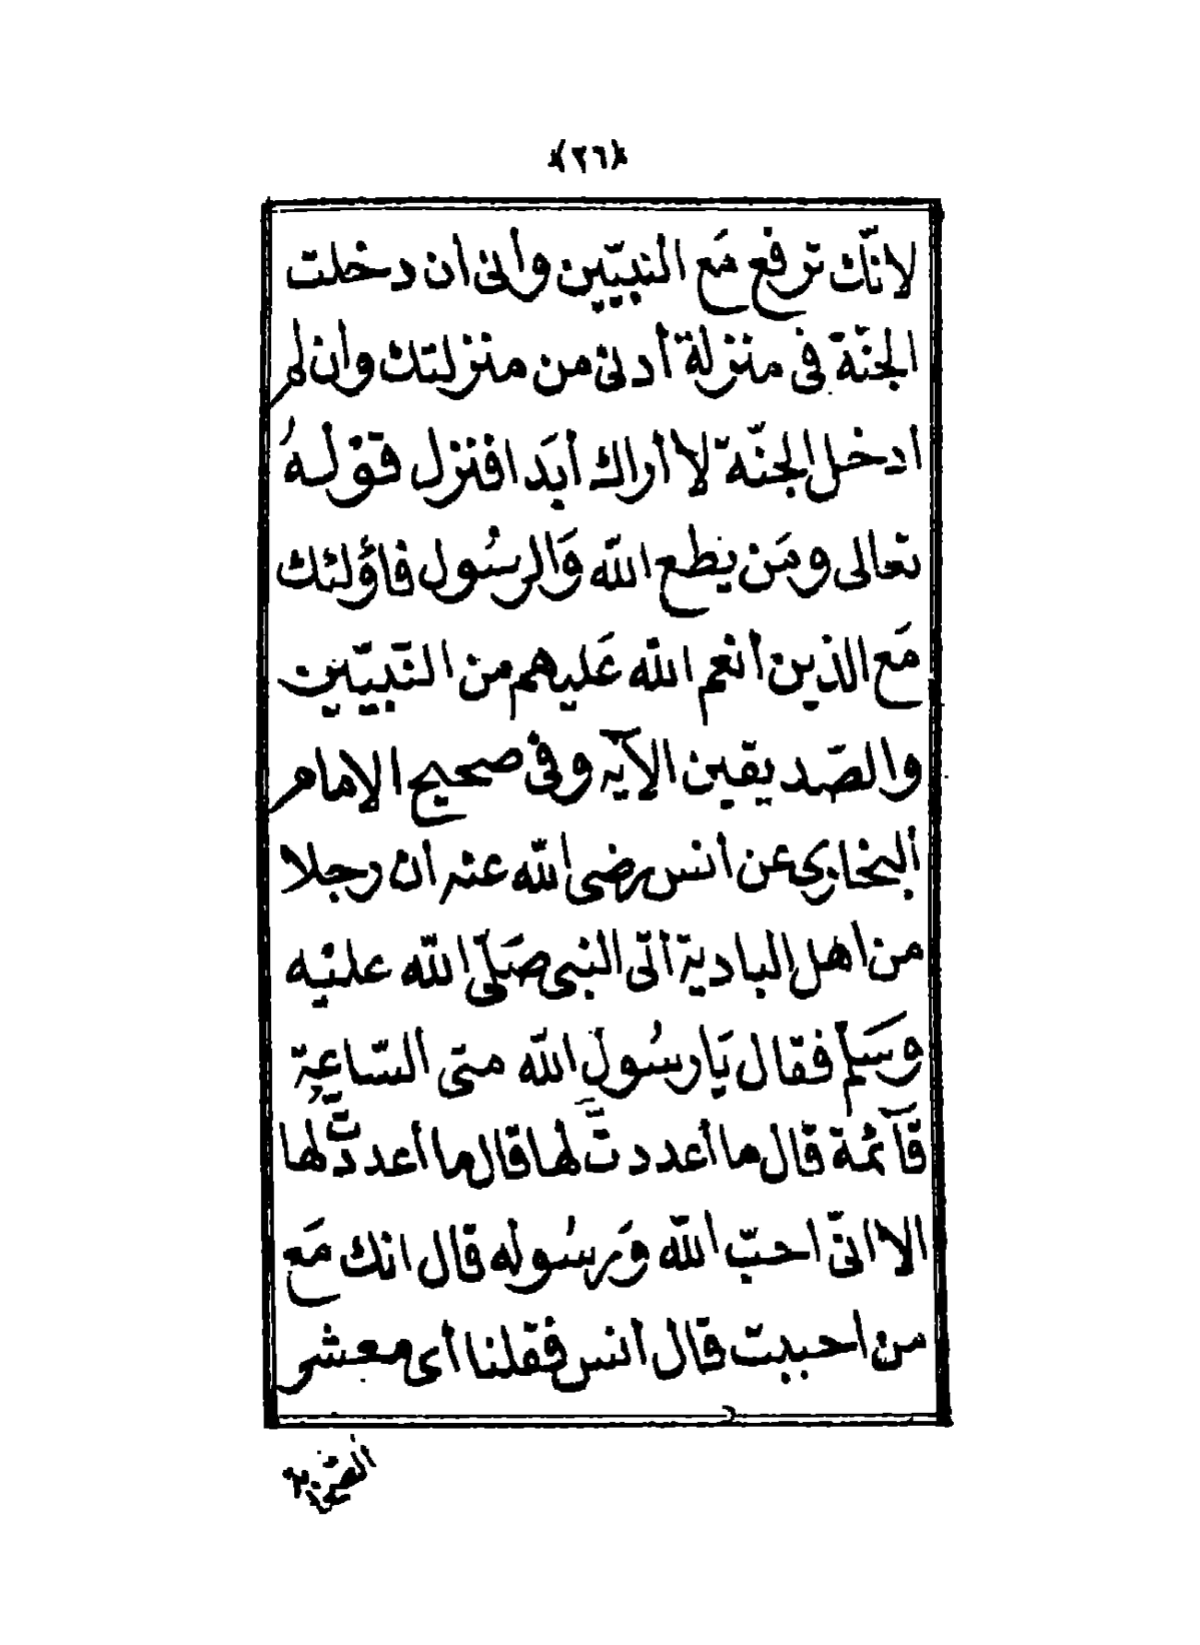 ﴿٢٦﴾
لانّك ترفع مَع النبيّين وأنى ان دخلت
الجنّة فى منزلة أدنى من منزلتك وان لم
ادخل الجنّة لا أراك أبَد افنزل قوْلهُ
تعالى ومَن يطع الله وَالرسُول فاؤلئك
مَع الذين أنعم الله عَليهم من النّبيّين
والصّديقين الآية وفى صحيح الامام
ألبخارى عن أنس رضى الله عنه أن رجلا
من اهل البادية أتى النبى صَلّى الله عليْه
وَسَلم فقال يَا رسُول الله متى السّاعة
قآئمة قال ما أعددتّ لها قال ما أعددتّ لها
الا انّى احبّ الله وَرسُوله قال انك مَع
من احببت قال أنس فقلنا أى معشر
الصّحابة